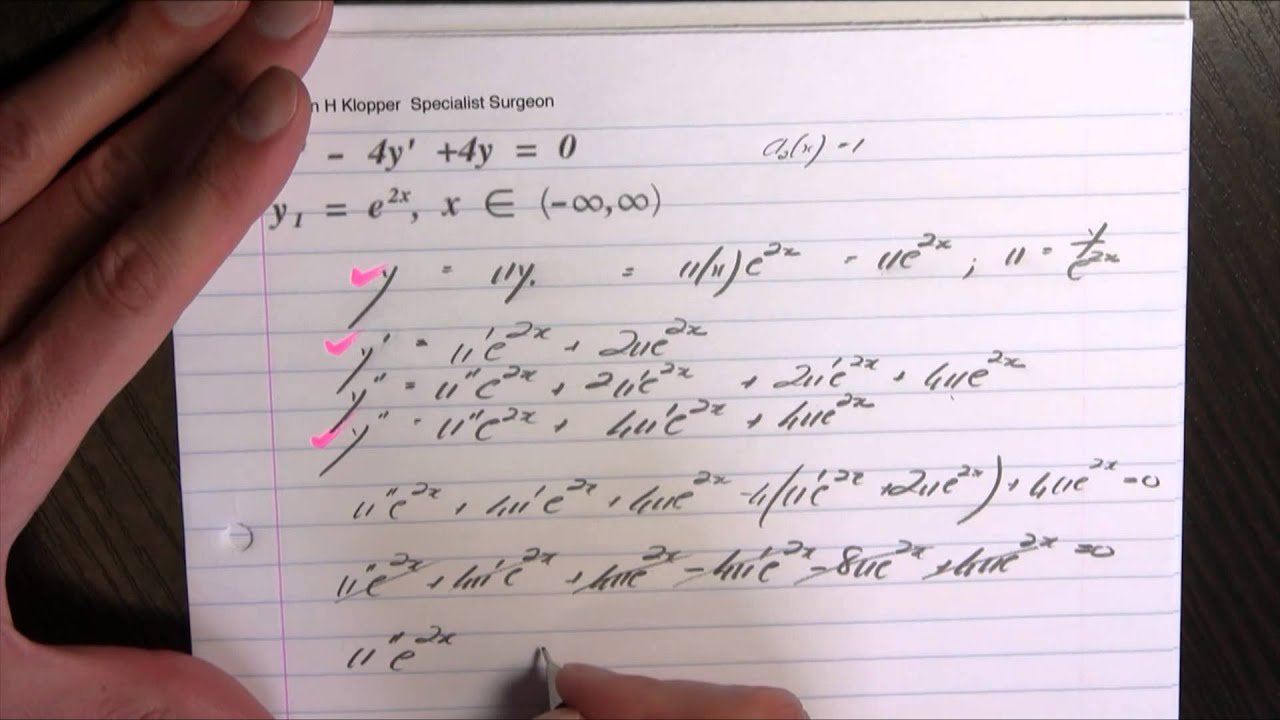 n H Klopper Specialist Surgeon
- 4y' +4y = 0
a₂(x) = 1
y₁ = e²ˣ, x ∈ (-∞,∞)
y = uy₁ = u(x)e²ˣ = ue²ˣ ; u = y/e²ˣ
y' = u'e²ˣ + 2ue²ˣ
y'' = u''e²ˣ + 2u'e²ˣ + 2u'e²ˣ + 4ue²ˣ
y'' = u''e²ˣ + 4u'e²ˣ + 4ue²ˣ
u''e²ˣ + 4u'e²ˣ + 4ue²ˣ - 4(u'e²ˣ + 2ue²ˣ) + 4ue²ˣ = 0
u''e²ˣ + 4u'e²ˣ + 4ue²ˣ - 4u'e²ˣ - 8ue²ˣ + 4ue²ˣ = 0
u''e²ˣ